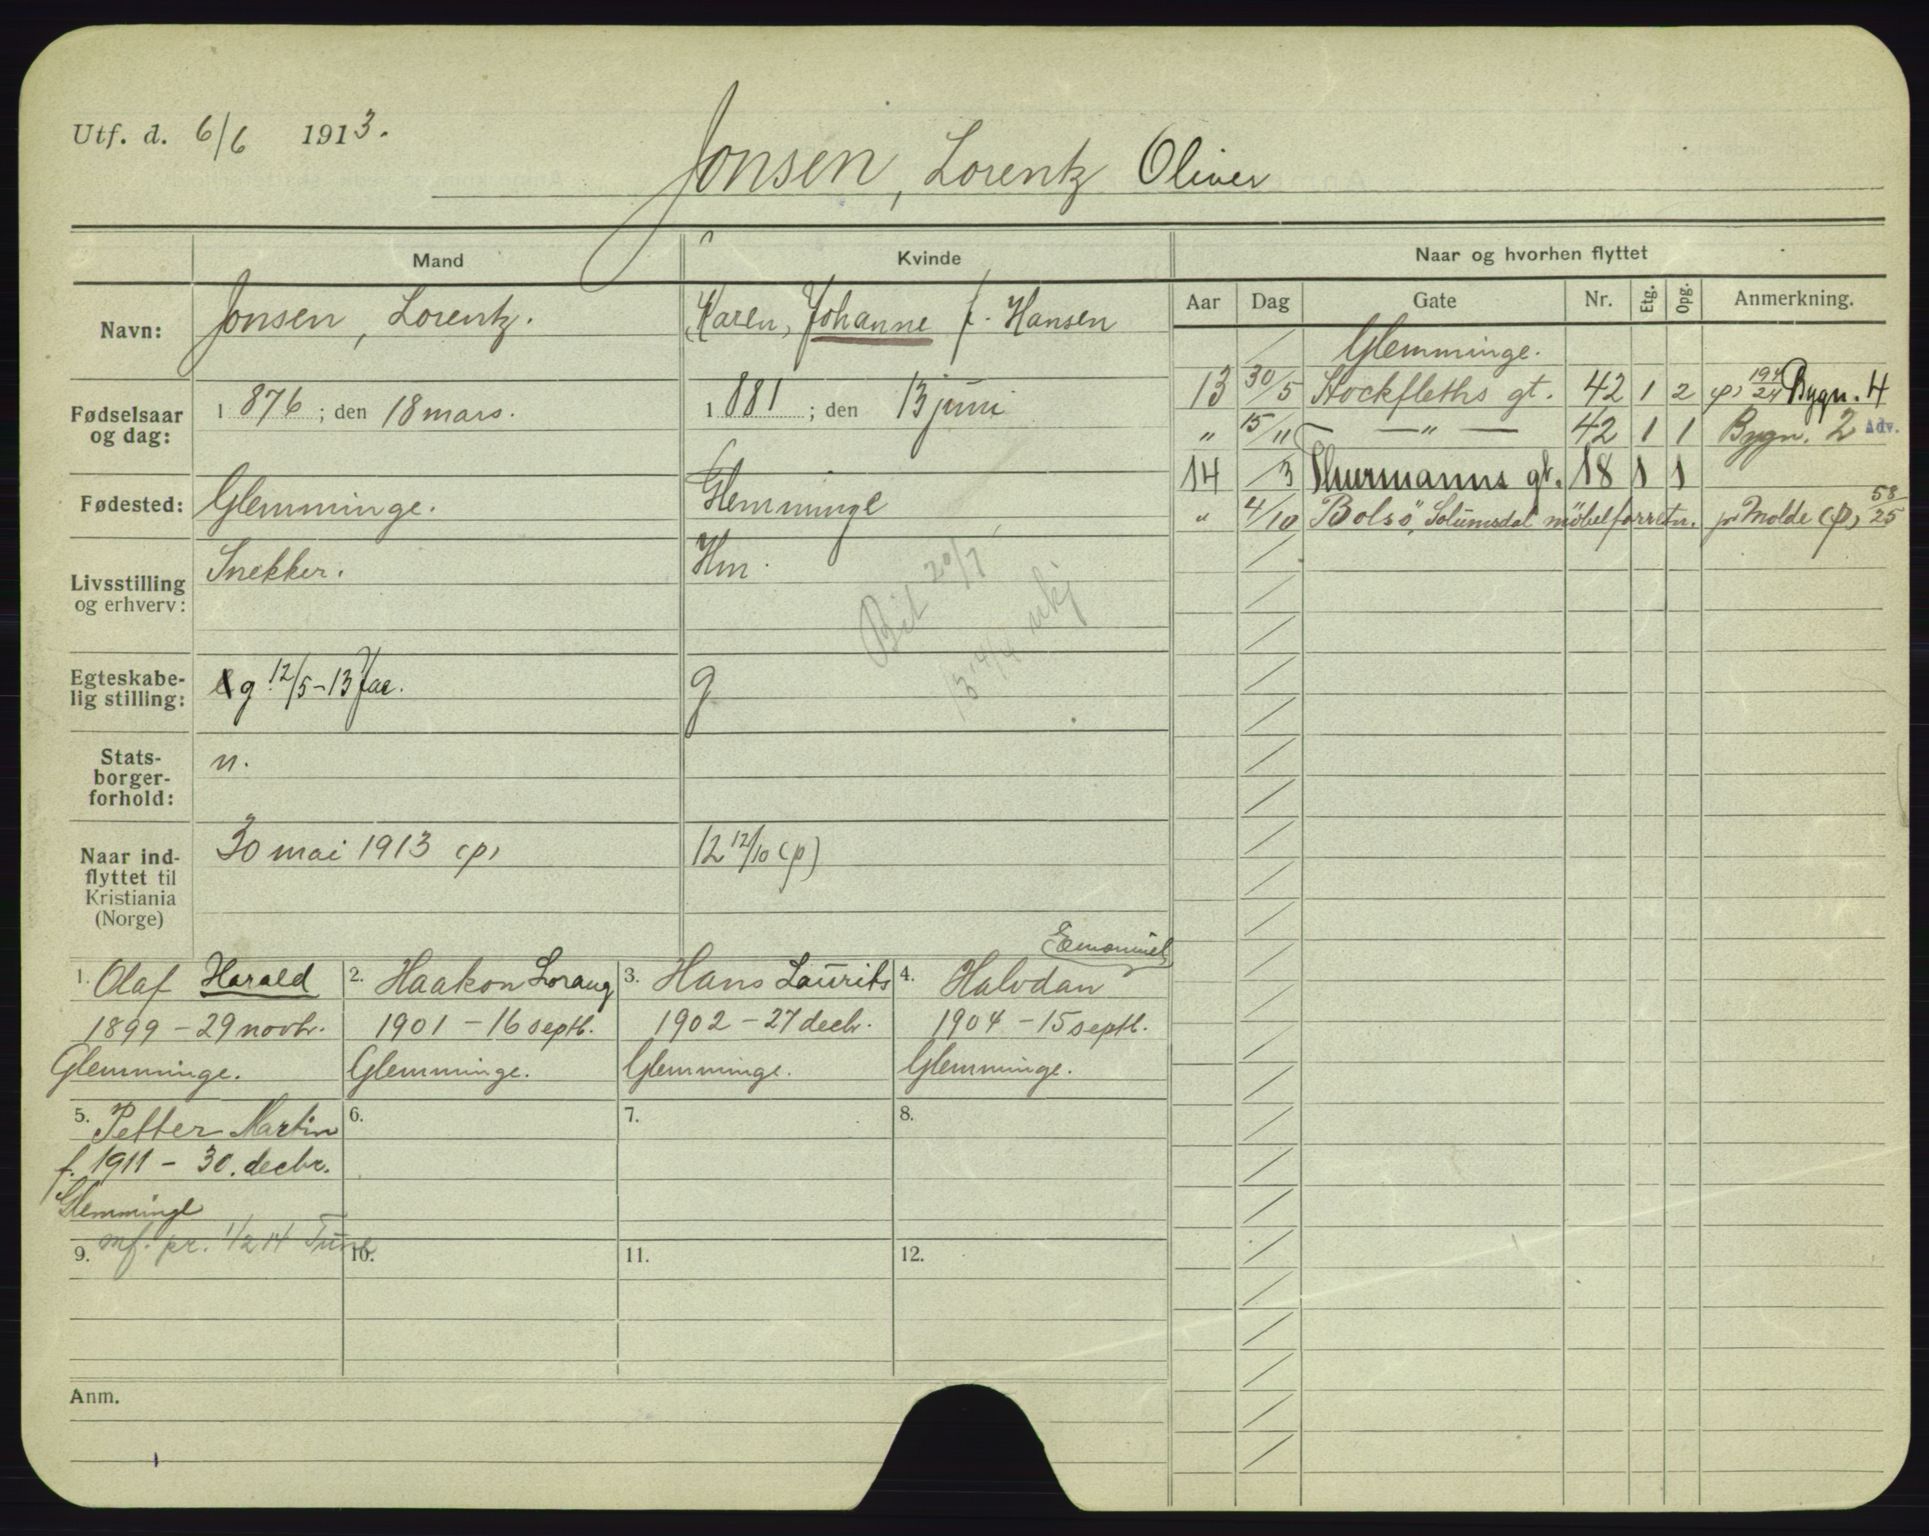 Utf. d. 6/6 1913.
Jonsen, Lorentz Oliver
Mand
Kvinde
Naar og hvorhen flyttet
Navn:
Jonsen, Lorentz.
Karen, Johanne f. Hansen
Aar Dag Gate Nr. Etg. Opg. Anmerkning.
Glemminge.
Fødselsaar
og dag:
1876; den 18 mars.
1881; den 13 juni
13 30/5 Stockfleths gt. 42 1 2 (p) 194/24 Bygn. 4
„ 15/11 — „ — 42 1 1 Bygn. 2 Adv.
14 /3 Thurmanns gt. 18 1 1
„ 4/10 Bolsø, Solumsdal møbelforretn. pr Molde (p) 58/25
Fødested:
Glemminge.
Glemminge
Livsstilling
og erhverv:
Snekker.
Hm.
20/7
Egteskabe-
lig stilling:
g. 12/5-13
g
Stats-
borger-
forhold:
n.
Naar ind-
flyttet til
Kristiania
(Norge)
30 mai 1913 (p)
12 12/10 (p)
1. Olaf Harald
1899 - 29 novbr.
Glemminge.
2. Haakon Lorang
1901 - 16 septb.
Glemminge.
3. Hans Laurits
1902 - 27 decbr.
Glemminge.
Emanuel
4. Halvdan
1904 - 15 septb.
Glemminge.
5. Petter Martin
f. 1911 - 30. decbr.
Glemminge
mf. pr. 1/2 14 Tune
6.
7.
8.
9.
10.
11.
12.
Anm.